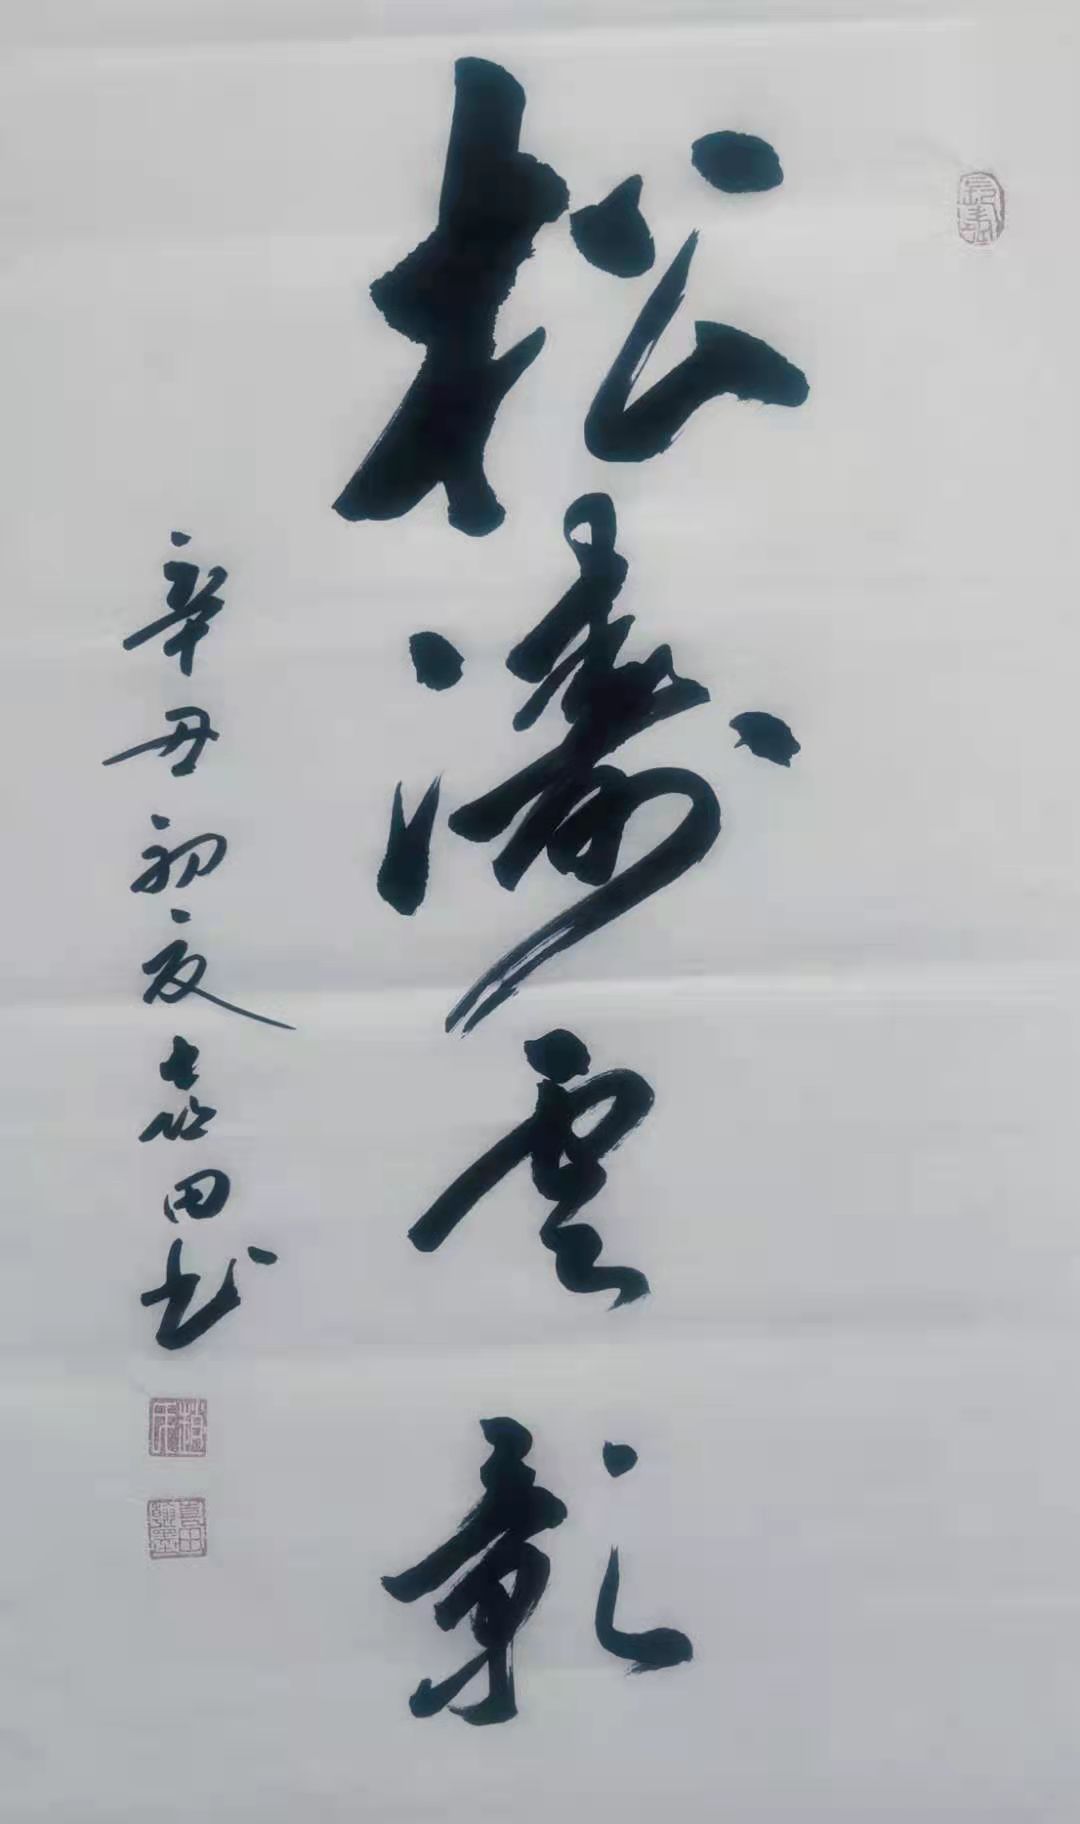 松濤雲影
辛丑初夏喜田书